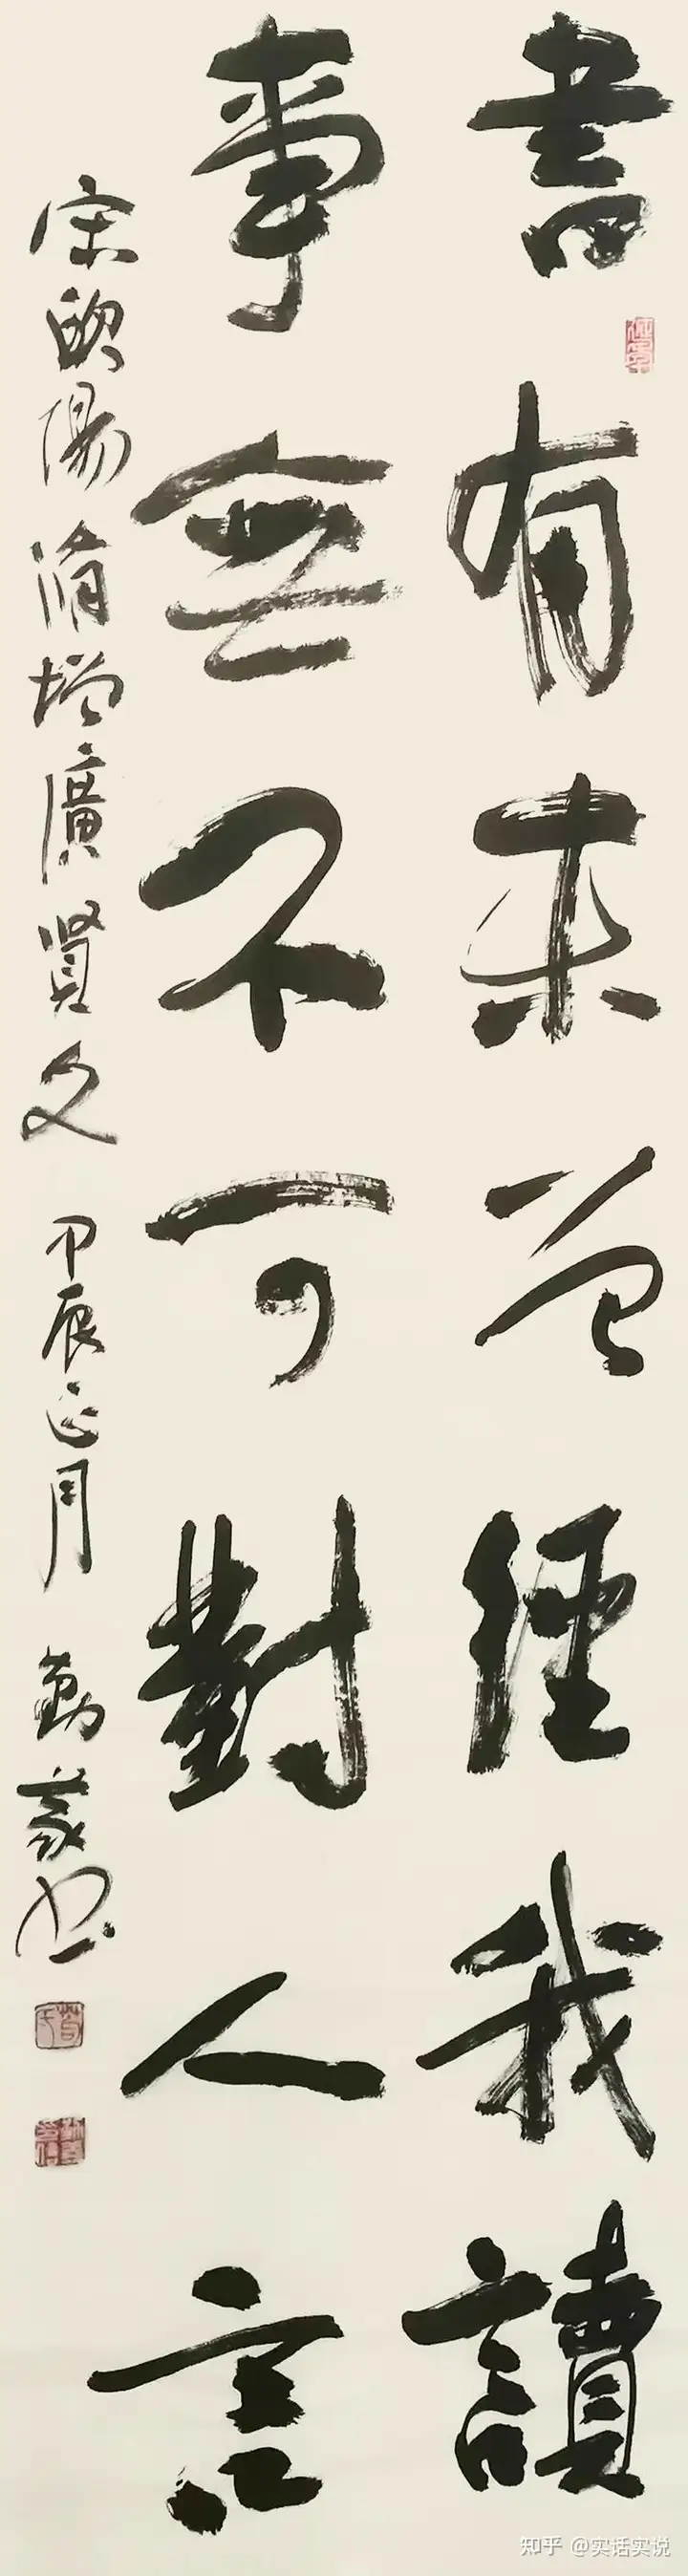 書有未曾經我讀
事無不可對人言
宋歐陽脩增廣賢文 甲辰正月 勤豪书
知乎 @实话实说